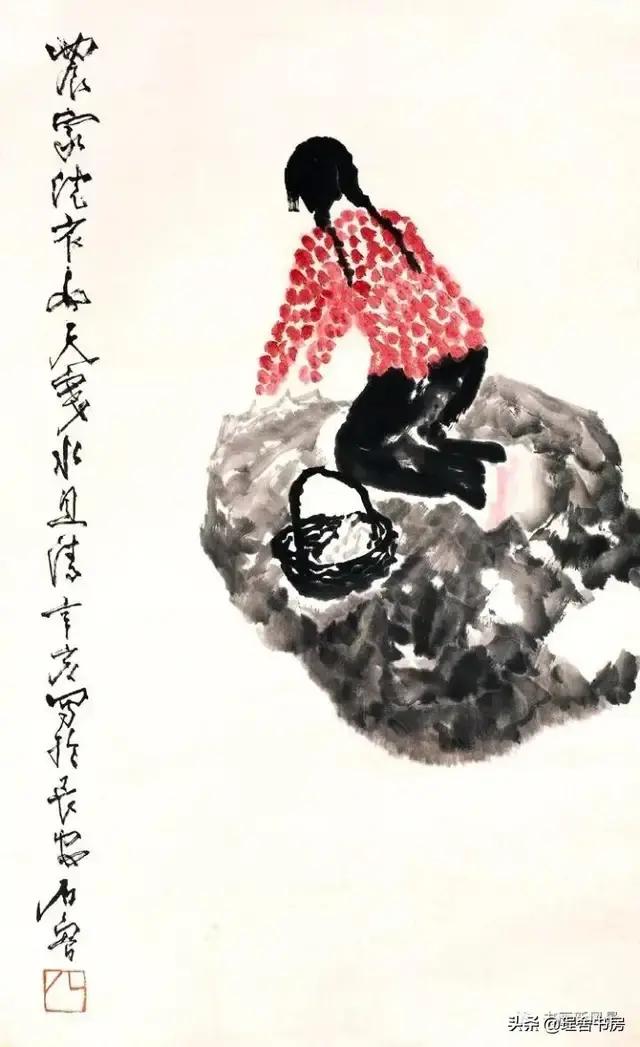 農家洗衣女天寒水且清辛亥写於長安石魯
头条 @理舍书房